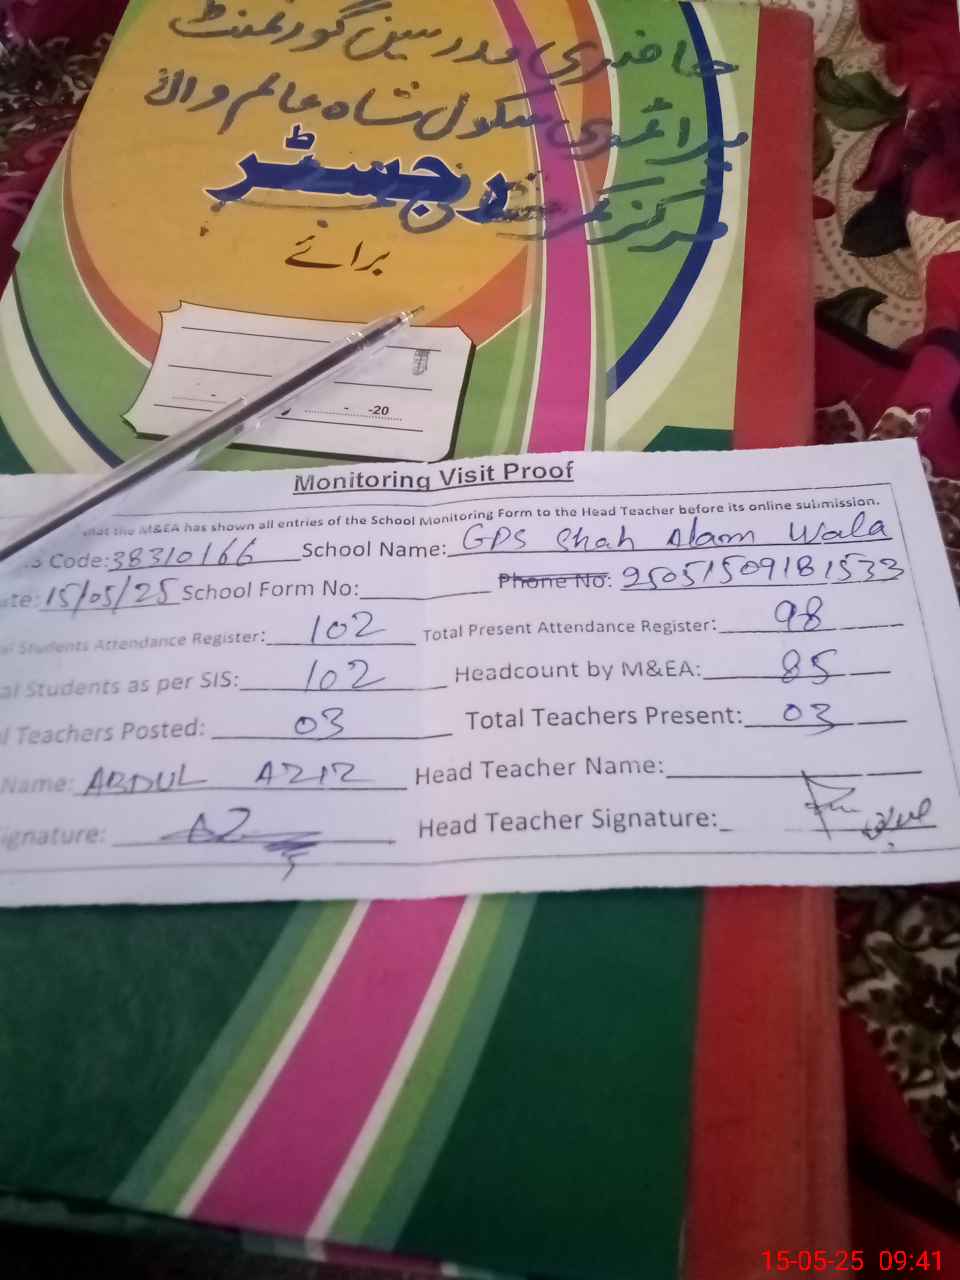 حاضری مدرسین گورنمنٹ
پرائمری سکول شاہ عالم والا
مرکز
رجسٹر
برائے
- -20
Monitoring Visit Proof
that the M&EA has shown all entries of the School Monitoring Form to the Head Teacher before its online submission.
Code: 38310166 School Name: GPS Shah Alam Wala
15/05/25 School Form No: Phone No: 25051509181533
Students Attendance Register: 102 Total Present Attendance Register: 98
Students as per SIS: 102 Headcount by M&EA: 85
Teachers Posted: 03 Total Teachers Present: 03
Name: ABDUL AZIZ Head Teacher Name:
Head Teacher Signature:
15-05-25 09:41